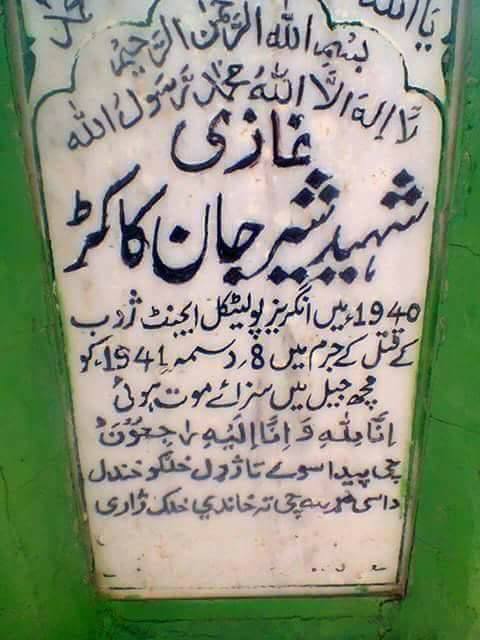 یااللہ
محمد
بسم اللہ الرحمن الرحیم
لَا اِلٰہَ اِلَّا اللہُ مُحَمَّدٌ رَّسُولُ اللہ
غازی
شہید شیر جان کاکڑ
1940ء میں انگریز پولیٹکل ایجنٹ ژوب
کے قتل کے جرم میں 8/دسمبر 1941ء کو
مچھ جیل میں سزائے موت ہوئی
اِنَّا لِلّٰہِ وَ اِنَّا اِلَیْہِ رَاجِعُوْنَ
چی پیدا سوے تا ژړل خلګو خندل
داسی مړ سه چی ته خاندې خلک ژاړی